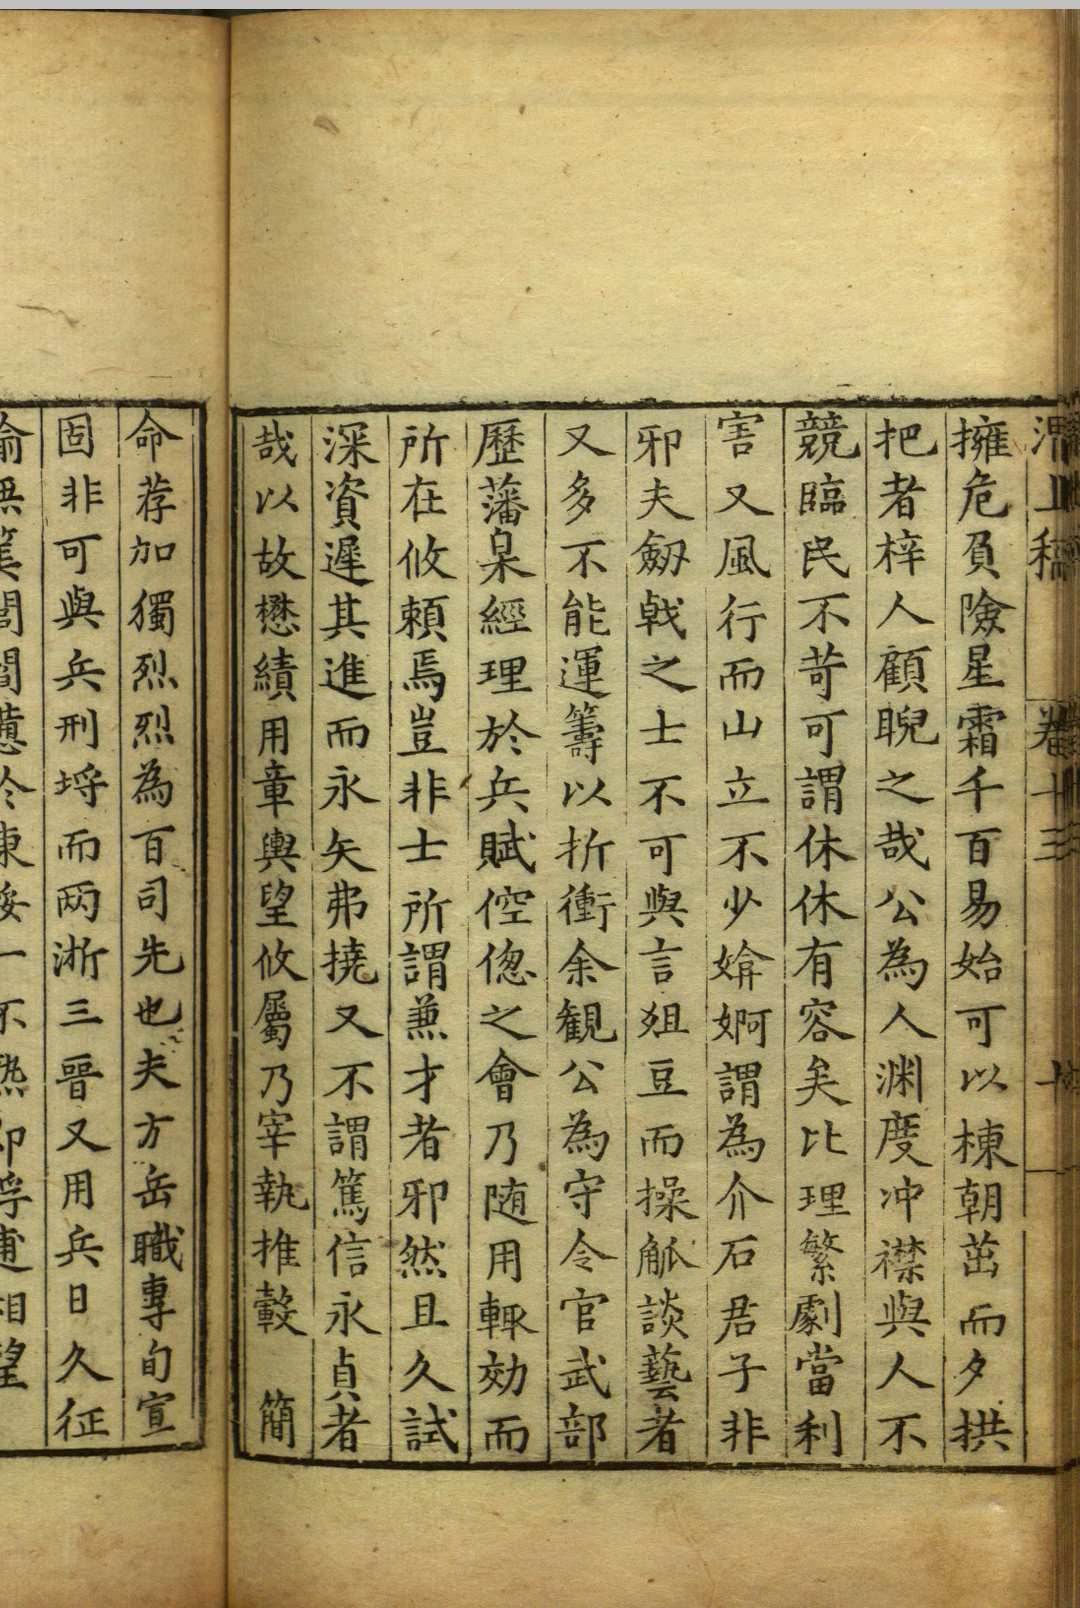 卷十三
擁危負險星霜千百易始可以棟朝茁而夕拱
把者梓人顧睨之哉公為人渊度冲襟與人不
競臨民不苛可謂休休有容矣比理繁劇當利
害又風行而山立不少媕婀謂為介石君子非
邪夫劔戟之士不可與言爼豆而操觚談藝者
又多不能運籌以折衝余観公為守令官武部
歷藩臬經理於兵賦倥偬之會乃随用輙効而
所在攸頼焉豈非士所謂兼才者邪然且久試
深資遲其進而永矢弗撓又不謂篤信永貞者
哉以故懋績用章輿望攸屬乃宰執推轂 簡
命荐加獨烈烈為百司先也夫方岳職專旬宣
固非可與兵刑埓而两淅三晉又用兵日久征